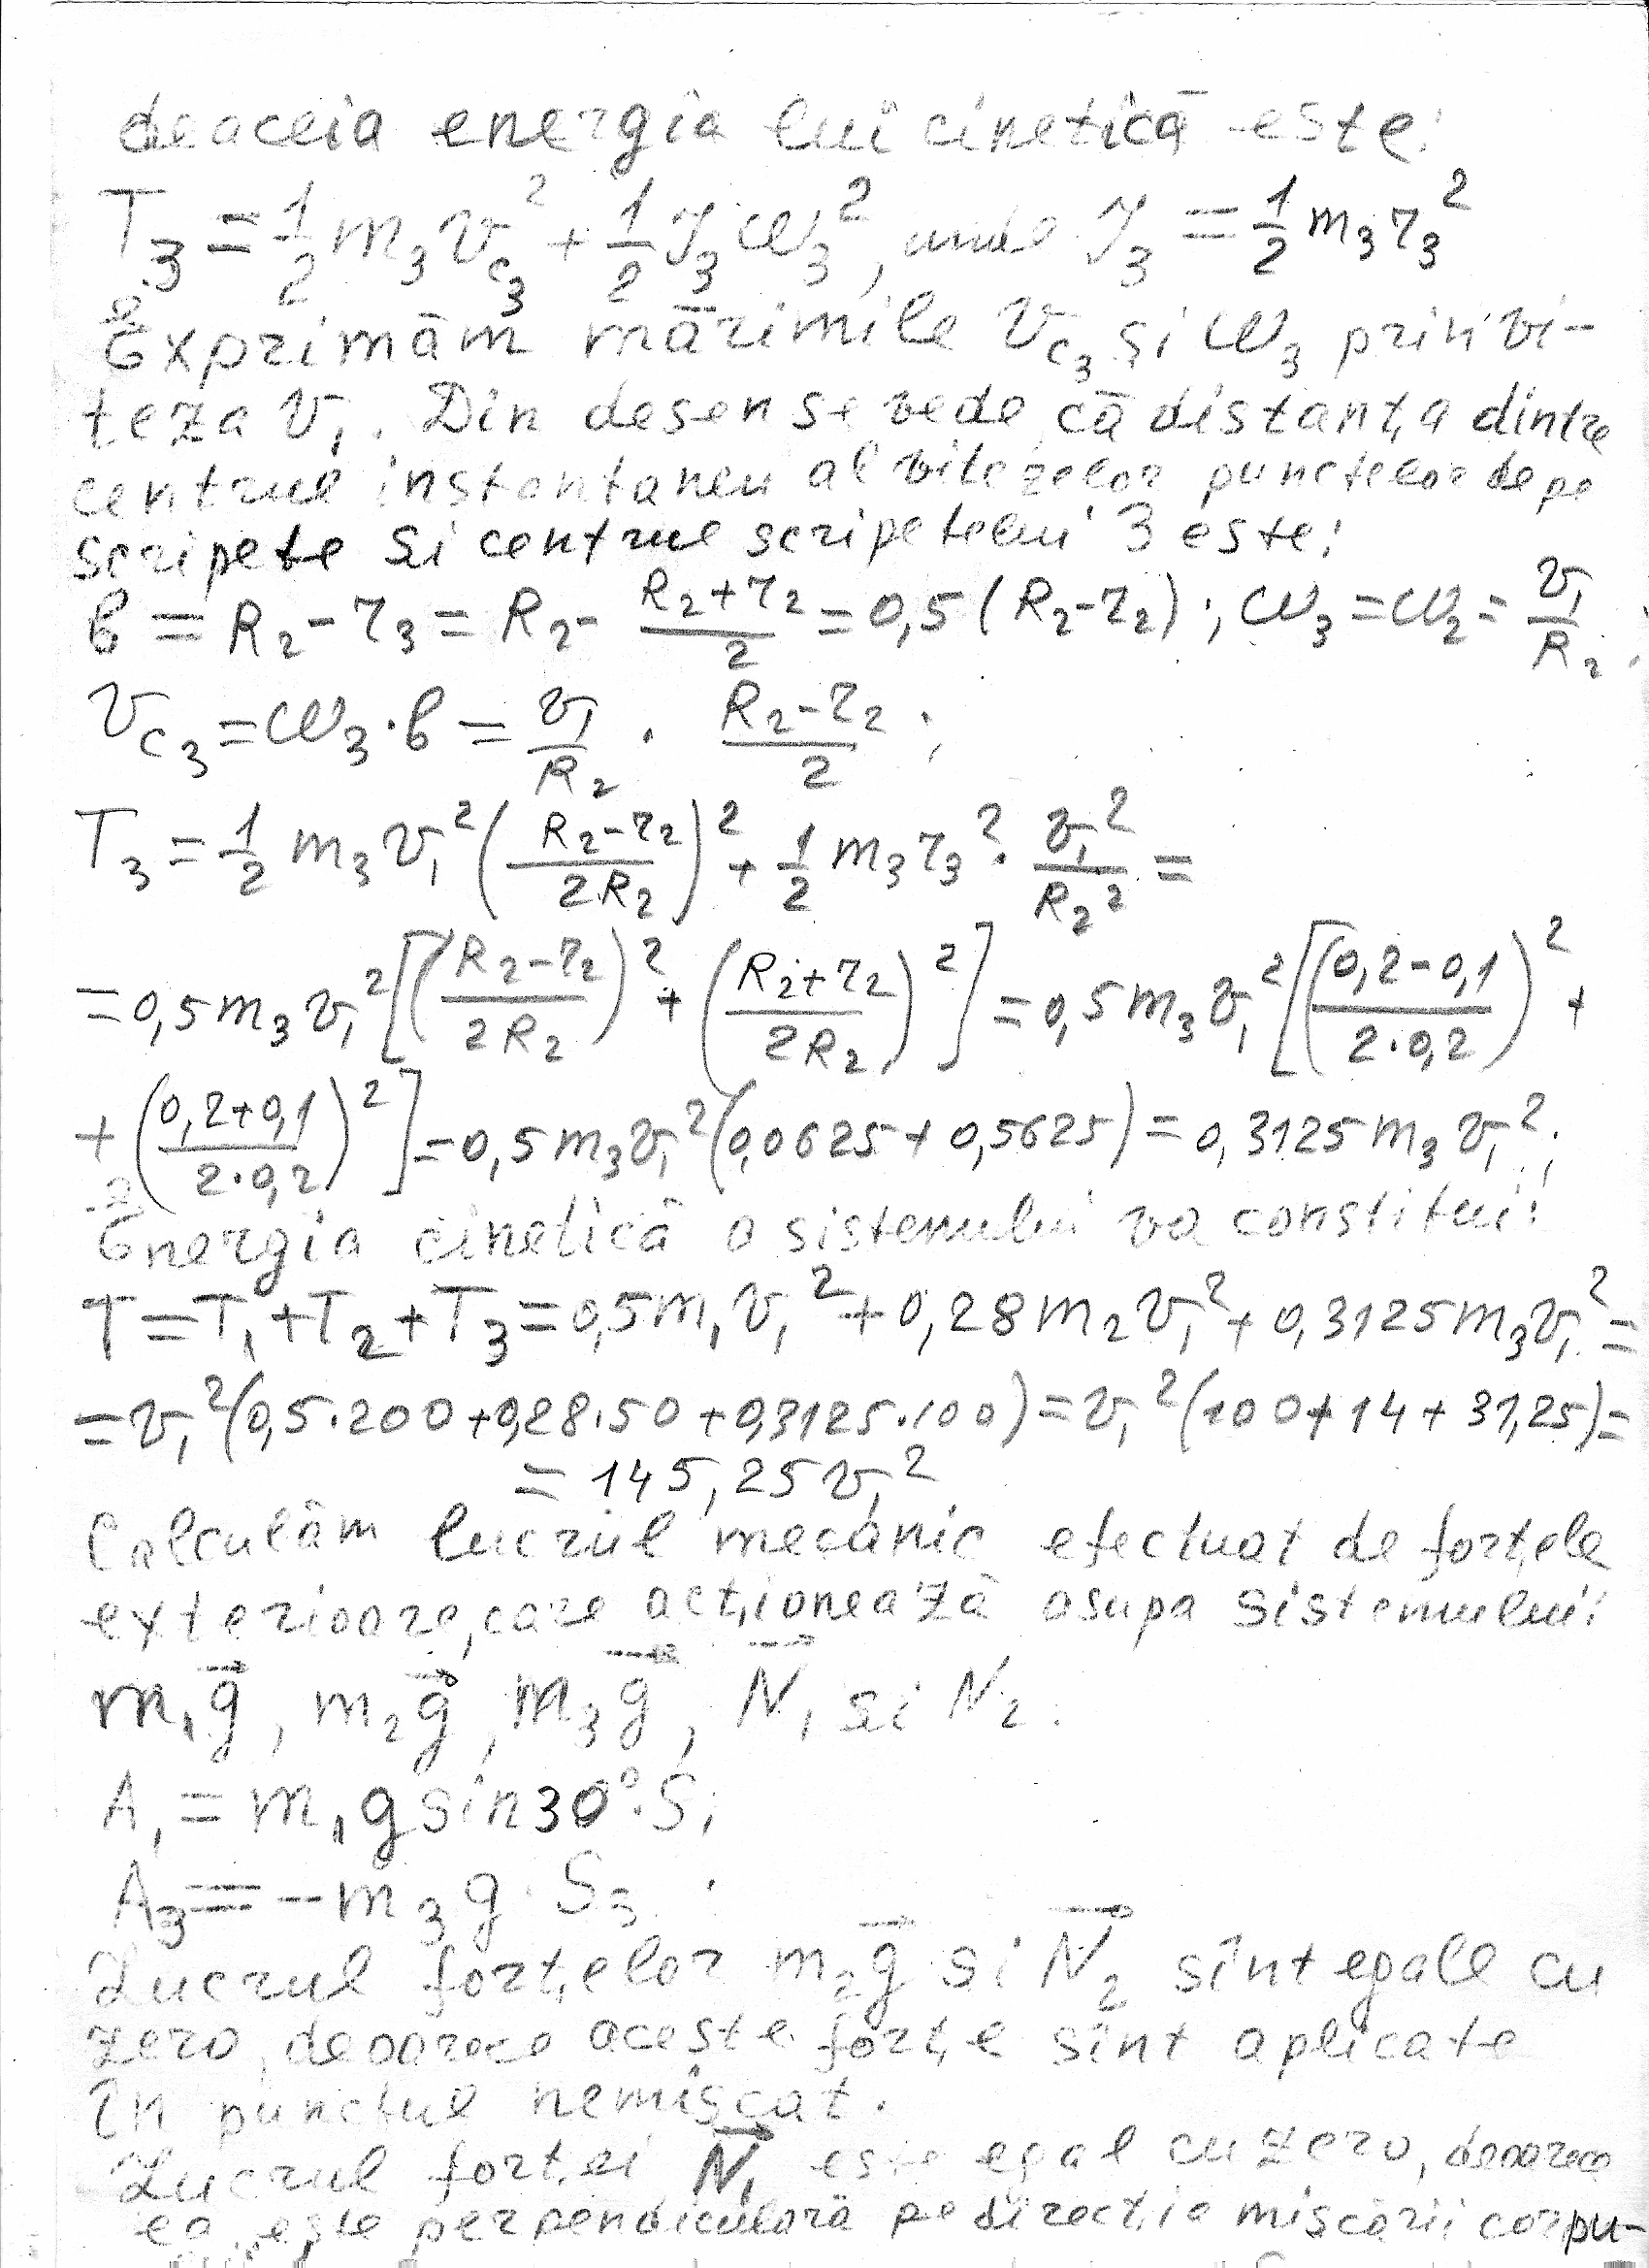 deaceia energia lui cinetică este:
T₃ = 1/2 m₃ v_c₃² + 1/2 J₃ ω₃², unde J₃ = 1/2 m₃ r₃²
Exprimăm mărimile v_c₃ și ω₃ prin vi-
teza v₁. Din desen se vede, că distanța dintre
centrul instantaneu al vitezelor punctelor de pe
scripete si centrul scripetelui 3 este:
b = R₂ - r₃ = R₂ - (R₂ + r₂)/2 = 0,5 (R₂ - r₂); ω₃ = ω₂ = v₁/R₂;
v_c₃ = ω₃ · b = v₁/R₂ · (R₂ - r₂)/2;
T₃ = 1/2 m₃ v₁² ((R₂ - r₂)/2R₂)² + 1/2 m₃ r₃² · v₁²/R₂² =
= 0,5 m₃ v₁² [((R₂ - r₂)/2R₂)² + ((R₂ + r₂)/2R₂)²] = 0,5 m₃ v₁² [((0,2 - 0,1)/2·0,2)² +
+ ((0,2 + 0,1)/2·0,2)²] = 0,5 m₃ v₁² (0,0625 + 0,5625) = 0,3125 m₃ v₁²;
Energia cinetică a sistemului va constitui:
T = T₁ + T₂ + T₃ = 0,5 m₁ v₁² + 0,28 m₂ v₁² + 0,3125 m₃ v₁² =
= v₁² (0,5·200 + 0,28·50 + 0,3125·100) = v₁² (100 + 14 + 31,25) =
= 145,25 v₁²
Calculăm lucrul mecanic efectuat de forțele
exterioare, care acționează asupa sistemului:
m₁g⃗, m₂g⃗, m₃g⃗, N⃗₁ si N₂.
A₁ = m₁ g sin30°·S₁
A₃ = - m₃ g · S₃.
Lucrul forțelor m₂g⃗ si N⃗₂ sînt egale cu
zero, deoarece aceste forțe sînt aplicate
în punctul nemișcat.
Lucrul forței N⃗₁ este egal cu zero, deoarece
ea este perpendiculară pe direcția mișcării corpu-